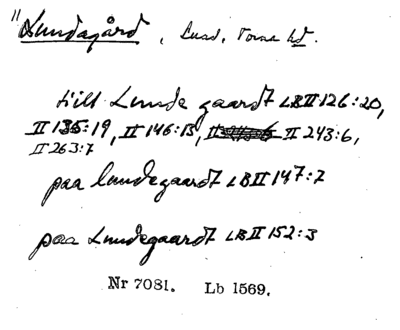 "Lundagård, Lund, Torna hd.
till Lunde gaardt LB II 126:20,
II 135:19, II 146:13, II 243:6,
II 263:7
paa lundegaardt LB II 147:2
paa Lundegaardt LB II 152:3
Nr 7081. Lb 1569.